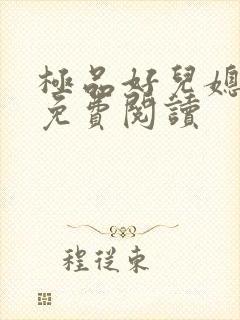 極品好兒媳
免費閱讀
程從東